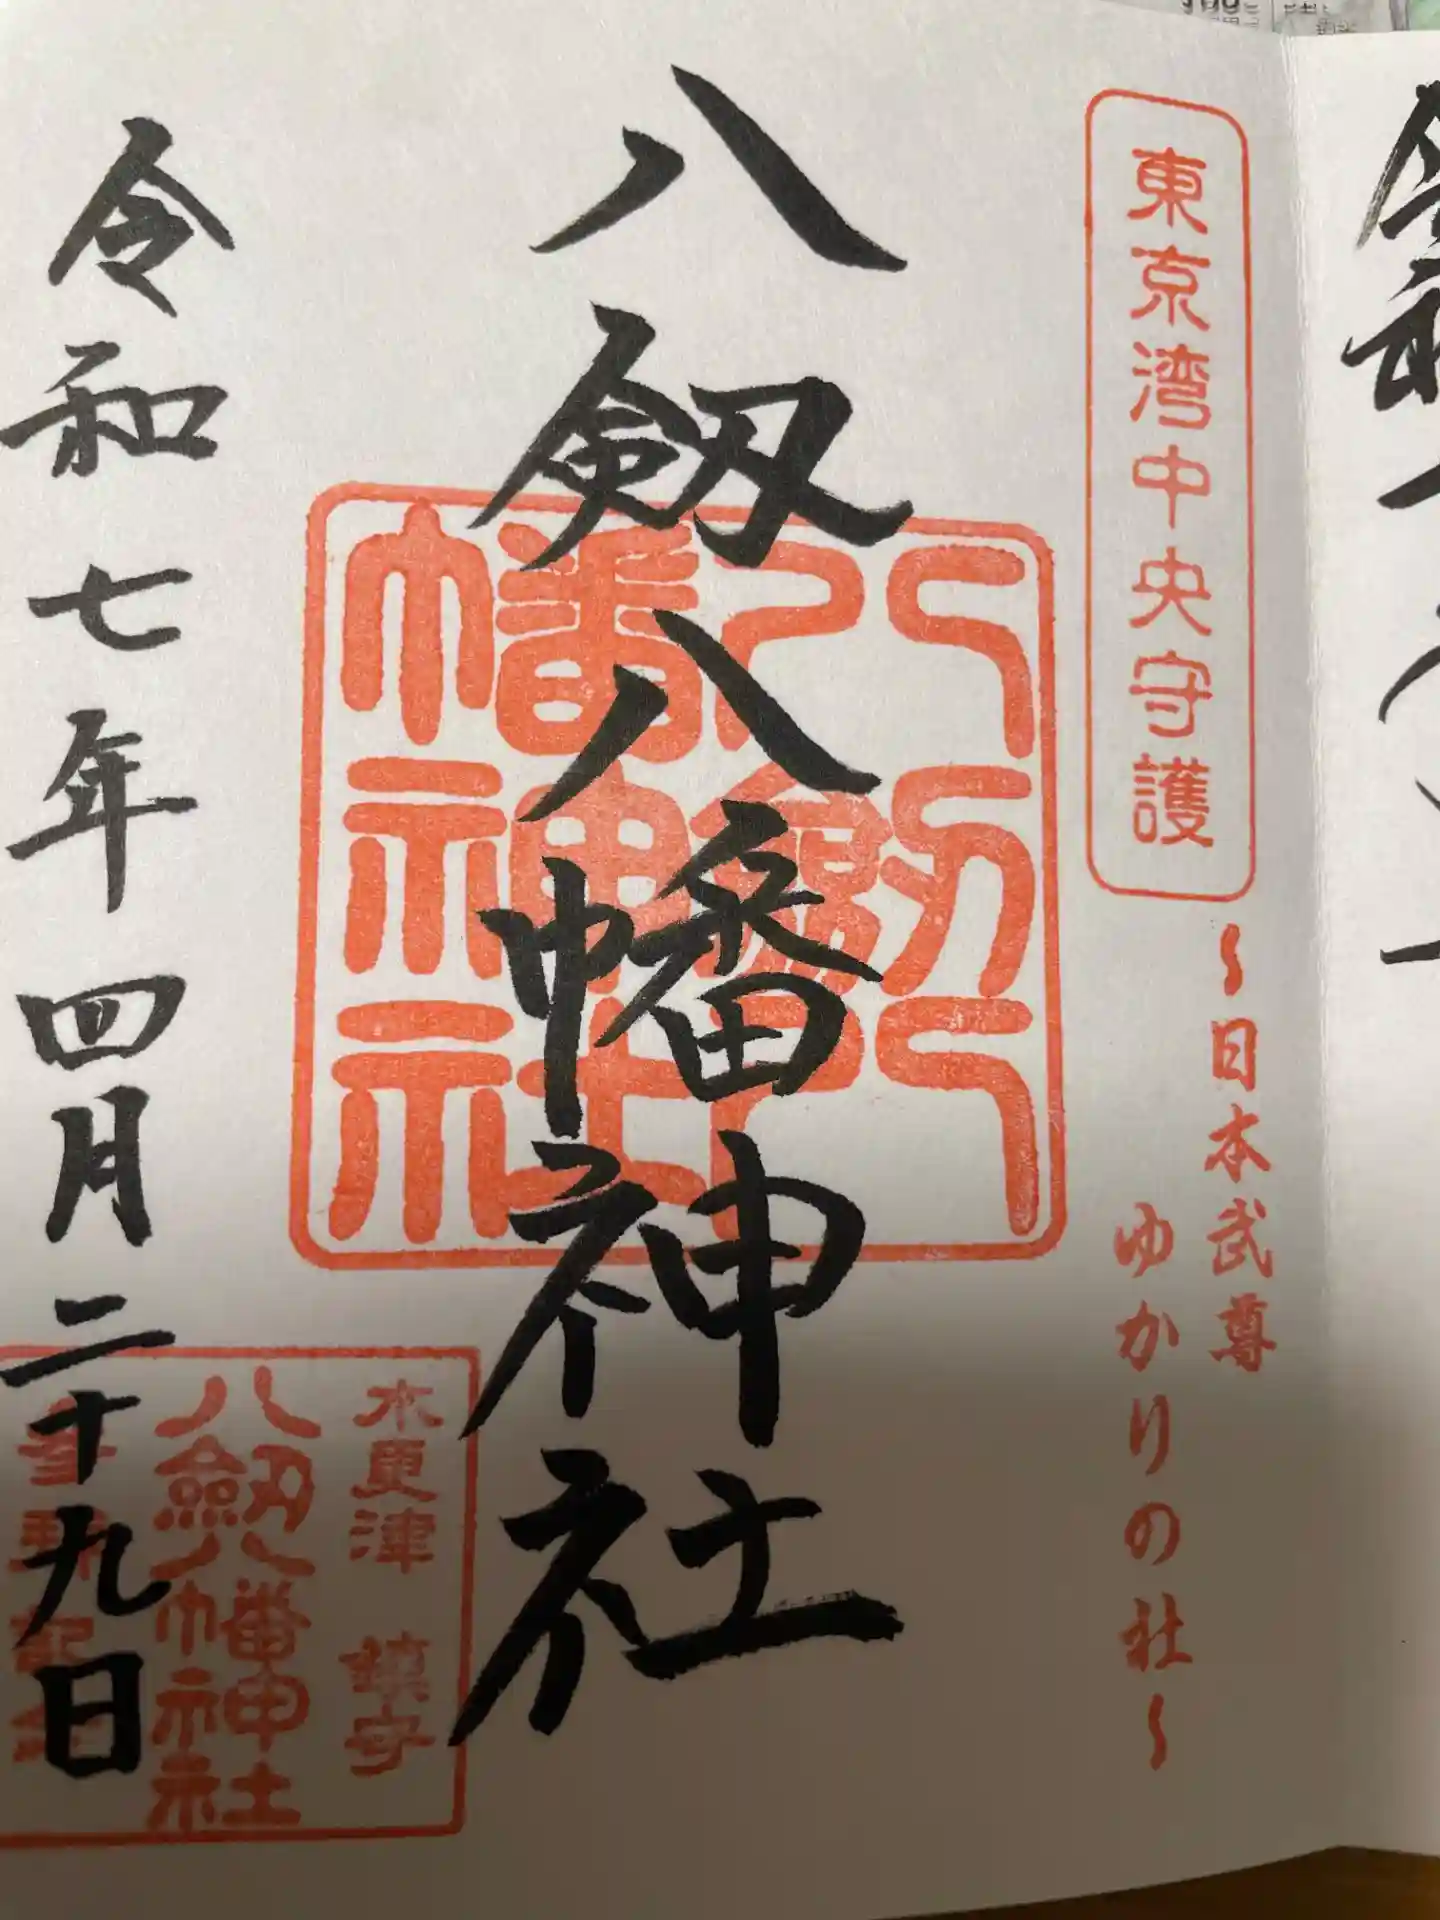 東京湾中央守護
～日本武尊
ゆかりの社～
八剱八幡神社
八剱八幡神社
木更津 鎮守
八剱八幡神社
令和七年四月二十九日